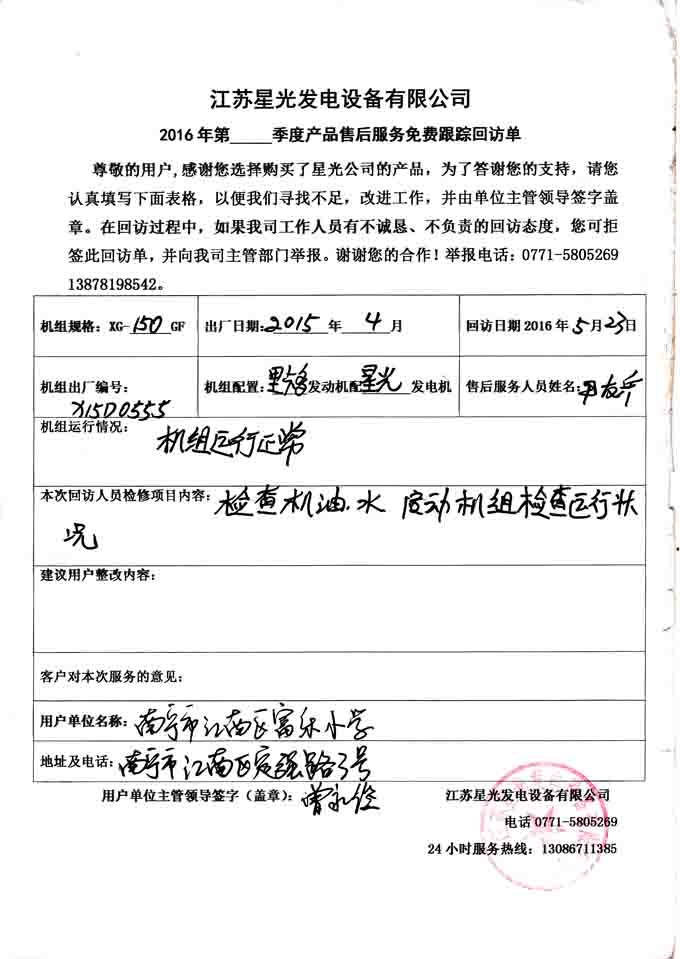 江苏星光发电设备有限公司
2016年第_____季度产品售后服务免费跟踪回访单
尊敬的用户,感谢您选择购买了星光公司的产品，为了答谢您的支持，请您
认真填写下面表格，以便我们寻找不足，改进工作，并由单位主管领导签字盖
章。在回访过程中，如果我司工作人员有不诚恳、不负责的回访态度，您可拒
签此回访单，并向我司主管部门举报。谢谢您的合作！举报电话：0771-5805269
13878198542。
机组规格：XG-150GF 出厂日期:2015年 4 月 回访日期2016年5月23日
机组出厂编号： 机组配置: 发动机配星光发电机 售后服务人员姓名:
X15D0555
机组运行情况：
机组运行正常
本次回访人员检修项目内容：检查机油.水 启动机组检查运行状
况
建议用户整改内容：
客户对本次服务的意见：
用户单位名称：南宁市江南区富乐小学
地址及电话：南宁市江南区定强路3号
用户单位主管领导签字（盖章）：曾
江苏星光发电设备有限公司
电话0771-5805269
24小时服务热线：13086711385